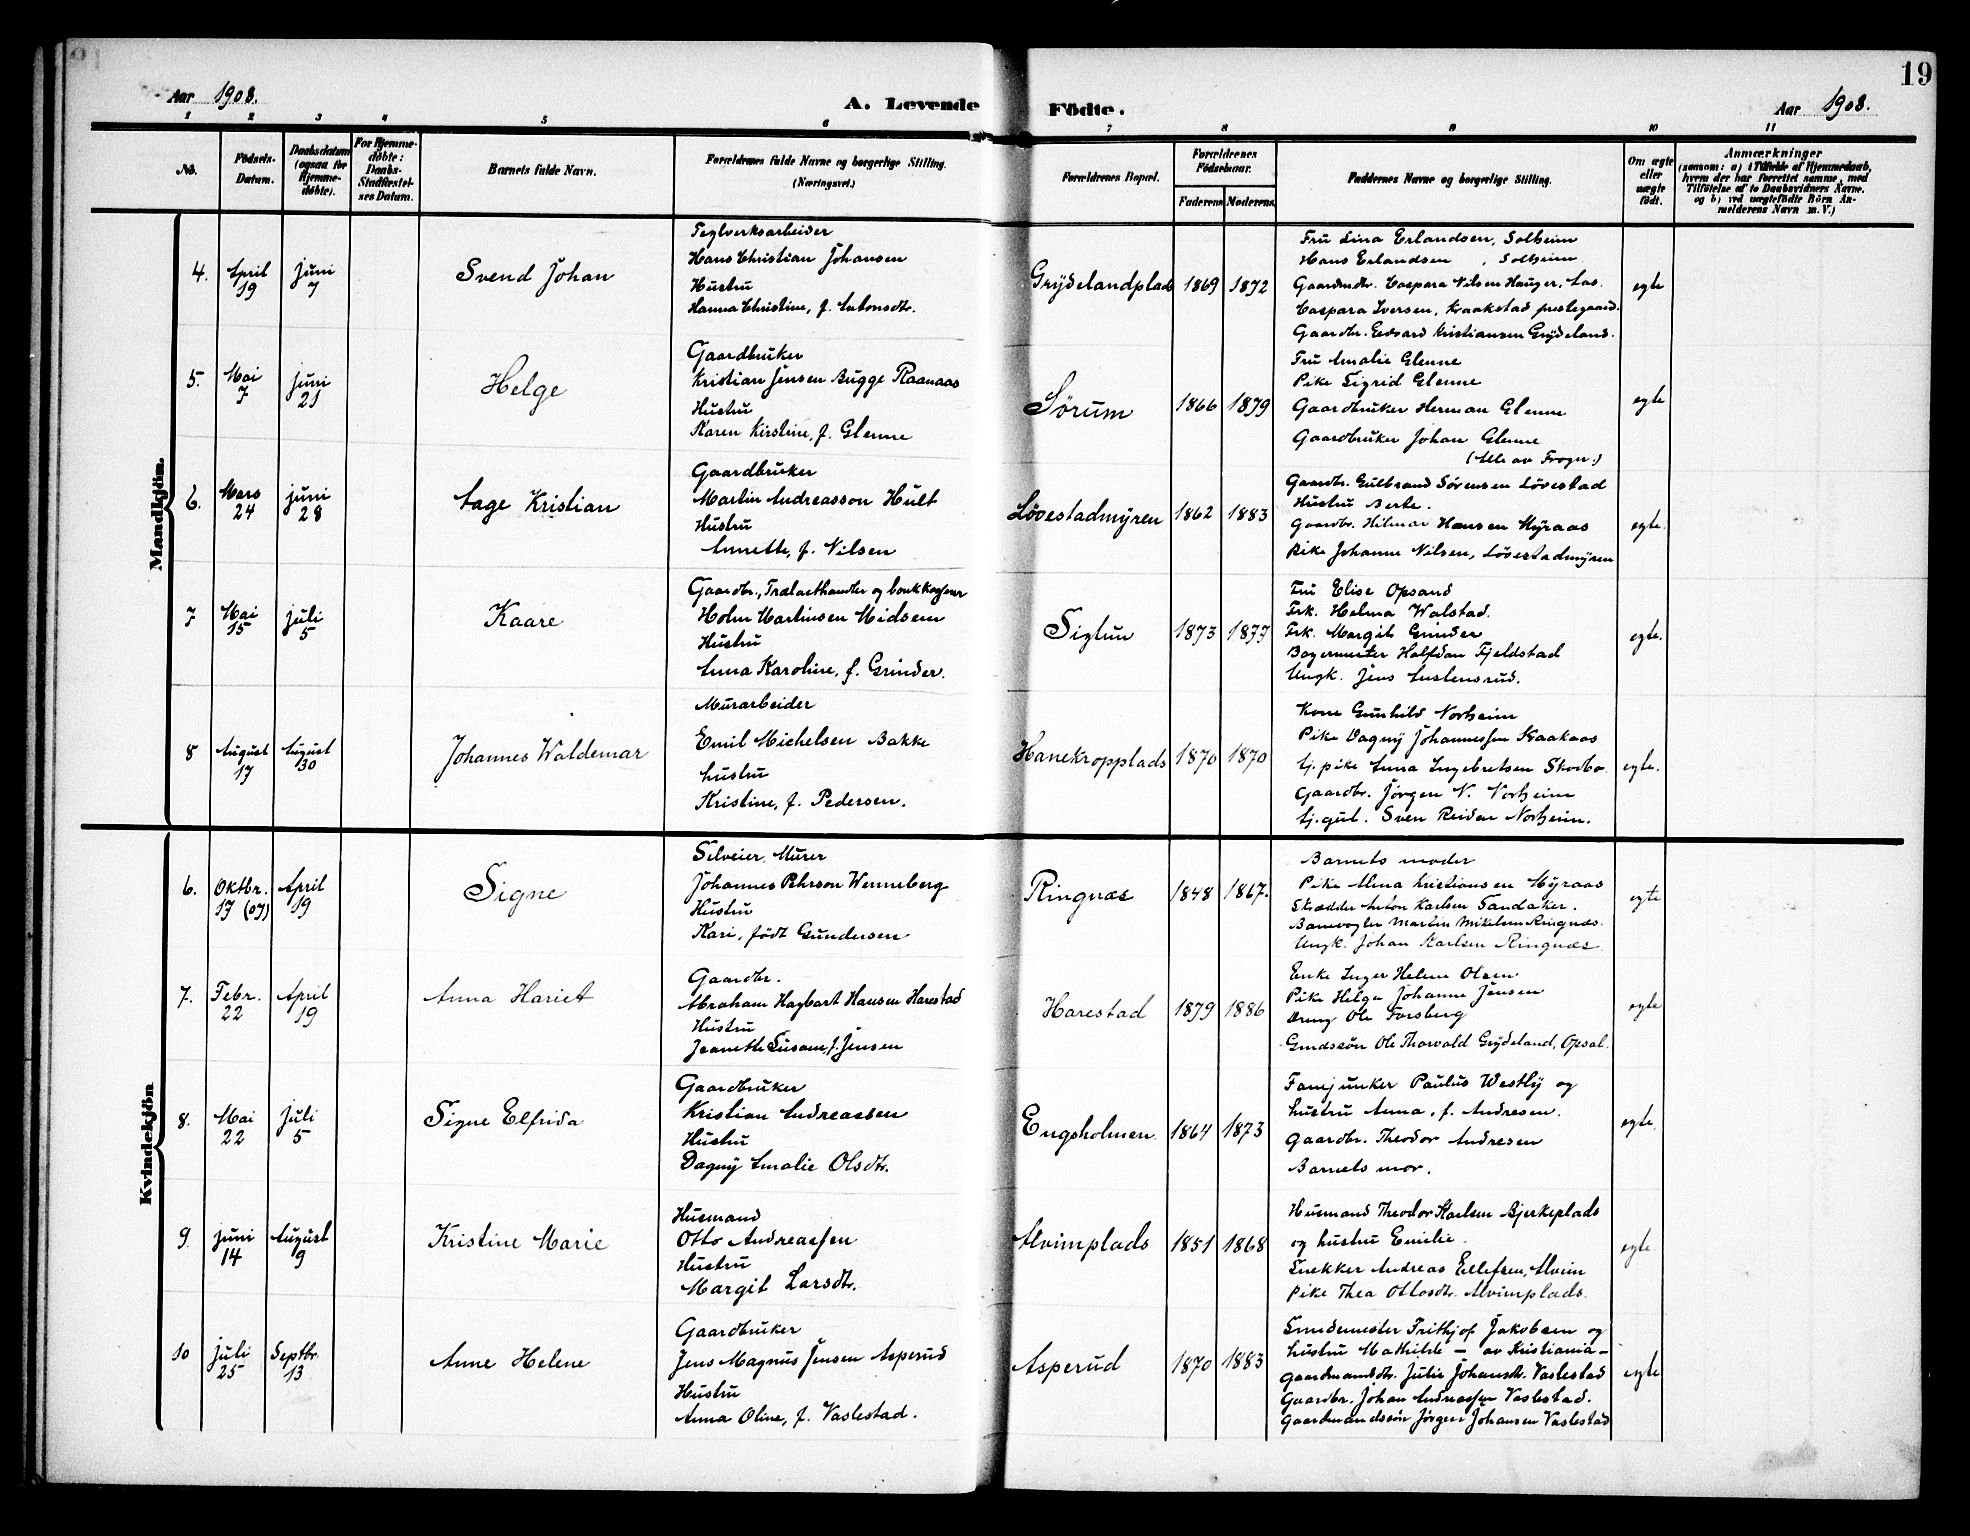 19
Aar 1908.
A. Levende Födte.
Aar 1908.
1 2 3 4 5 6 7 8 9 10 11
No.
Födsels-Datum.
Daabsdatum (ogsaa for Hjemme-döbte).
For Hjemme-döbte: Daabs-Stadfæstel-ses Datum.
Barnets fulde Navn.
Forældrenes fulde Navne og borgerlige Stilling. (Næringsvei.)
Forældrenes Bopæl.
Forældrenes Födselsaar.
Faderens Moderens
Faddernes Navne og borgerlige Stilling.
Om ægte eller uægte födt.
Anmærkninger
(saasom: a) i Tilfælde af Hjemmedaab, hvem der har forrettet samme, med Tilföielse af to Daabsvidners Navne, og b) ved uægtefödte Börn An-melderens Navn m. V.)
Mandkjön.
4. April 19 Juni 7
Svend Johan
Teglverksarbeider
Hans Christian Johansen
Hustru
Hanna Christine, f. Antonsdtr.
Grydelandplads 1869 1872
Fru Lina Erlandsen, Solheim
Hans Erlandsen, Solheim
Gaardmdtr. Caspara Nilsen Hauger, Aas.
Caspara Iversen, Kraakstad prestegaard.
Gaardbr. Edvard Kristiansen Grydeland.
egte
5. Mai 7 Juni 21
Helge
Gaardbruker
Kristian Jensen Bugge Raanaas
Hustru
Karen Kirstine, f. Glenne
Sørum 1866 1879
Fru Amalie Glenne
Pike Sigrid Glenne
Gaardbruker Herman Glenne
Gaardbruker Johan Glenne
(Alle av Frogn.)
egte
6. Mars 24 Juni 28
Aage Kristian
Gaardbruker
Martin Andreasson Hult
Hustru
Annette, f. Nilsen
Løvestadmyren 1862 1883
Gaardbr. Gulbrand Sørensen Løvestad
Hustru Berte.
Gaardbr. Hilmar Hansen Myraas
Pike Johanne Nilsen, Løvestadmyren
egte.
7 Mai 15 Juli 5
Kaare
Gaardbr., Trælasthandler og bankkasserer
Holm Martinsen Midsem
Hustru
Anna Karoline, f. Grinder.
Sigtun 1873 1877
Fru Elise Opsand
Frk. Helma Walstad.
Frk. Margit Grinder
Bagermester Halfdan Fjeldstad
Ungk. Jens Auslensrud.
egte.
8 August 17 August 30
Johannes Waldemar
Murarbeider
Emil Michelsen Bakke
hustru
Kristine, f. Pedersen.
Hanekropplads 1870 1870
Kone Gunhild Norheim
Pike Dagny Johannessen Kraakaas
tj. pike Anna Ingebretsen Skodbo.
Gaardbr. Jørgen N. Norheim
tj. gut. Sven Reidar Norheim.
egte.
Kvindekjön
6. Oktbr. 17 (07) April 19
Signe
Selveier, Murer
Johannes Pehrson Wenneberg
Hustru
Kari, født Gundersen
Ringnæs 1848 1867.
Barnets moder
Pike Alma Kristiansen Myraas
Skrædder Anton Karlsen Sandaker.
Banevogter Martin Mikelsen Ringnæs.
Ungk. Johan Karlsen Ringnæs.
egte
7. Febr. 22 April 19
Anna Hariet
Gaardbr.
Abraham Hagbart Hansen Harestad
Hustru
Jeanette Susane, f. Jensen
Harestad 1879 1886
Enke Inger Helene Olsen
Pike Helga Johanne Jensen
Dreng Ole Forsberg
Gaardssøn Ole Thorvald Grydeland, Opsal.
egte
8. Mai 22 Juli 5
Signe Elfrida
Gaardbruker
Kristian Andreassen
Hustru
Dagny Amalie Olsdtr.
Engsholmen. 1864 1873
Fanejunker Paulus Westly og
hustru Anna, f. Andresen.
Gaardbr. Theodor Andresen
Barnets mor.
egte.
9. Juni 14 August 9
Kristine Marie
Husmand
Otto Andreassen
Hustru
Margit Larsdtr.
Alvimplads 1851 1868
Husmand Theodor Karlsen Bjerkeplads
og hustru Emilie.
Snekker Andreas Ellefsen, Alvim
Pike Thea Ottosdtr. Alvimplads.
egte
10 Juli 25 Septbr. 13
Anne Helene
Gaardbruker
Jens Magnus Jensen Asperud
Hustru
Anna Oline, f. Vaslestad.
Asperud 1870 1883
Smedemester Frithjof Jakobsen og
hustru Mathilde – av Kristiania –
Gaardmandsdtr. Julie Johansdtr. Vaslestad
Gaardbr. Johan Andreassen Vaslestad.
Gaardmandssøn Jørgen Johansen Vaslestad
egte